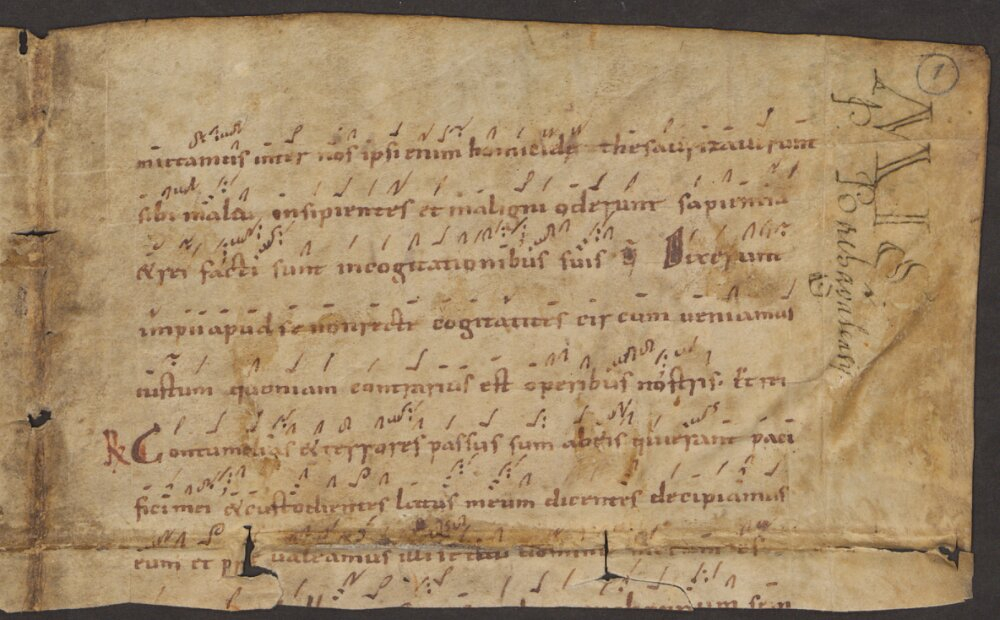 mittamus inter nos ipsi enim homicide thesaurizauerunt
sibi mala, insipientes et maligni oderunt sapientia
& rei facti sunt incogitationibus suis Dixerunt
impii apud se non recte cogitantes circumueniamus
iustum quoniam contrarius est operibus nostris. Et rei
R Contumelias & terrores passus sum ab eis qui erant paci
fici mei & custodientes latus meum dicentes decipiamus
eum et pre ualeamus illi
1